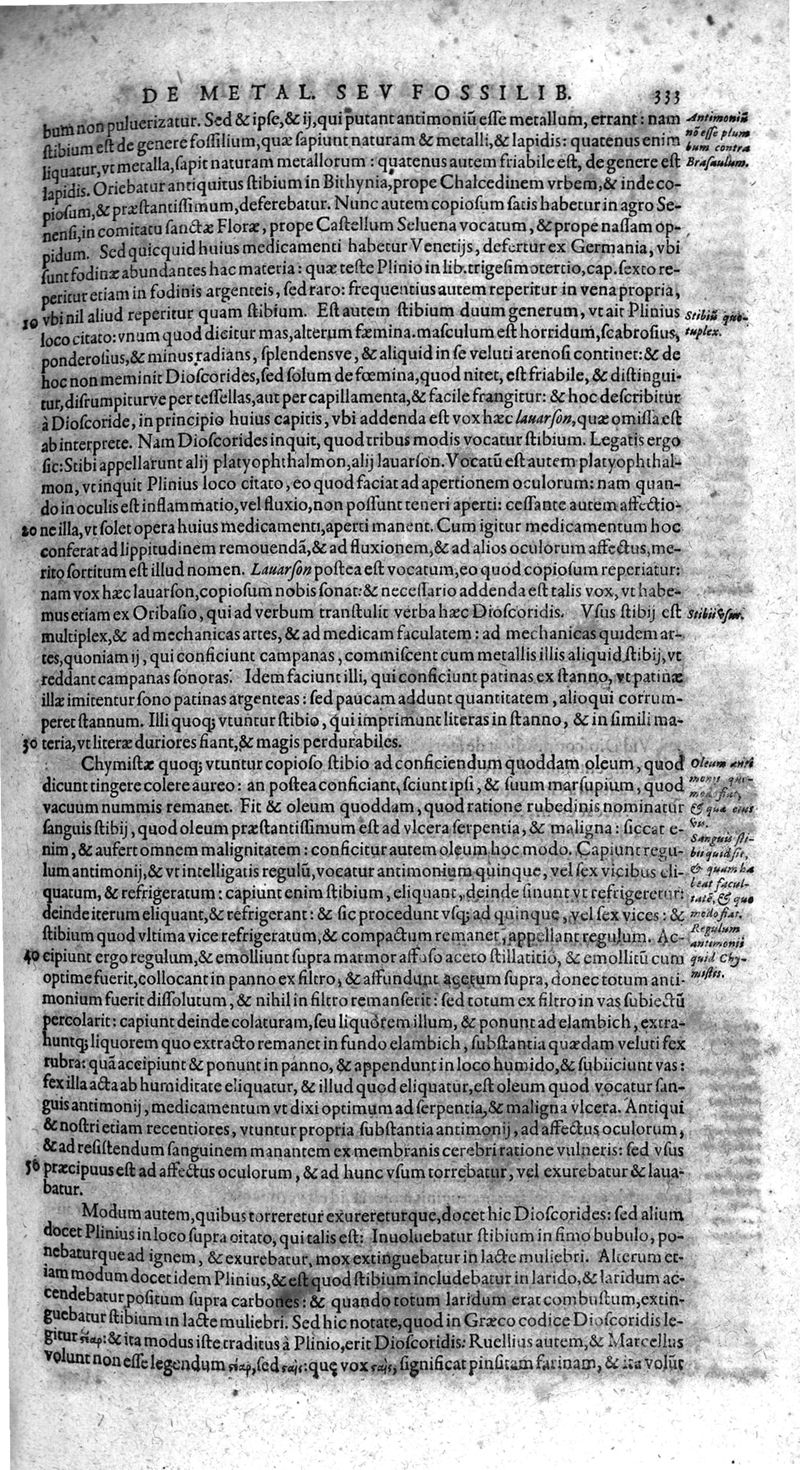 DE METAL. SEV FOSSILIB. 333
bum non puluerizatur. Sed & ipse, & ij, qui putant antimoniū esse metallum, errant: nam
stibium est de genere fossilium, quæ sapiunt naturam & metalli, & lapidis: quatenus enim
liquatur, vt metalla, sapit naturam metallorum: quatenus autem friabile est, de genere est
lapidis. Oriebatur antiquitus stibium in Bithynia, prope Chalcedinem vrbem, & inde co-
piosum, & præstantissimum, deferebatur. Nunc autem copiosum satis habetur in agro Se-
nensi, in comitatu sanctæ Floræ, prope Castellum Seluena vocatum, & prope nassam op-
pidum. Sed quicquid huius medicamenti habetur Venetijs, defertur ex Germania, vbi
sunt fodinæ abundantes hac materia: quæ teste Plinio in lib. trigesimotertio, cap. sexto re-
peritur etiam in fodinis argenteis, sed raro: frequentius autem reperitur in vena propria,
10 vbi nil aliud reperitur quam stibium. Est autem stibium duum generum, vt ait Plinius
loco citato: vnum quod dicitur mas, alterum fæmina. masculum est horridum, scabrosius,
ponderosius, & minus radians, splendensve, & aliquid in se veluti arenosi continet: & de
hoc non meminit Dioscorides, sed solum de fœmina, quod nitet, est friabile, & distingui-
tur, disrumpiturve per tessellas, aut per capillamenta, & facile frangitur: & hoc describitur
à Dioscoride, in principio huius capitis, vbi addenda est vox hæc lauarson, quæ omissa est
ab interprete. Nam Dioscorides inquit, quod tribus modis vocatur stibium. Legatis ergo
sic: Stibi appellarunt alij platyophthalmon, alij lauarson. Vocatū est autem platyophthal-
mon, vt inquit Plinius loco citato, eo quod faciat ad apertionem oculorum: nam quan-
do in oculis est inflammatio, vel fluxio, non possunt teneri aperti: cessante autem affectio-
20 ne illa, vt solet opera huius medicamenti, aperti manent. Cum igitur medicamentum hoc
conferat ad lippitudinem remouendā, & ad fluxionem, & ad alios oculorum affectus, me-
rito sortitum est illud nomen. Lauarson postea est vocatum, eo quod copiosum reperiatur:
nam vox hæc lauarson, copiosum nobis sonat: & necessario addenda est talis vox, vt habe-
mus etiam ex Oribasio, qui ad verbum transtulit verba hæc Dioscoridis. Vsus stibij est
multiplex, & ad mechanicas artes, & ad medicam facultatem: ad mechanicas quidem ar-
tes, quoniam ij, qui conficiunt campanas, commiscent cum metallis illis aliquid stibij, vt
reddant campanas sonoras. Idem faciunt illi, qui conficiunt patinas ex stanno, vt patinæ
illæ imitentur sono patinas argenteas: sed paucam addunt quantitatem, alioqui corrum-
peret stannum. Illi quoq; vtuntur stibio, qui imprimunt literas in stanno, & in simili ma-
30 teria, vt literæ duriores fiant, & magis perdurabiles.
Chymistæ quoq; vtuntur copioso stibio ad conficiendum quoddam oleum, quod
dicunt tingere colere aureo: an postea conficiant, sciunt ipsi, & suum marsupium, quod
vacuum nummis remanet. Fit & oleum quoddam, quod ratione rubedinis nominatur
sanguis stibij, quod oleum præstantissimum est ad vlcera serpentia, & maligna: siccat e-
nim, & aufert omnem malignitatem: conficitur autem oleum hoc modo. Capiunt regu-
lum antimonij, & vt intelligatis regulū, vocatur antimonium quinque, vel sex vicibus eli-
quatum, & refrigeratum: capiunt enim stibium, eliquant, deinde sinunt vt refrigeretur:
deinde iterum eliquant, & refrigerant: & sic procedunt vsq; ad quinque, vel sex vices: &
stibium quod vltima vice refrigeratum, & compactum remanet, appellant regulum. Ac-
40 cipiunt ergo regulum, & emolliunt supra marmor affuso aceto stillatitio, & emollitū cum
optime fuerit, collocant in panno ex filtro, & affundunt acetum supra, donec totum anti-
monium fuerit dissolutum, & nihil in filtro remanserit: sed totum ex filtro in vas subiectū
percolarit: capiunt deinde colaturam, seu liquorem illum, & ponunt ad elambich, extra-
huntq; liquorem quo extracto remanet in fundo elambich, substantia quædam veluti fex
rubra: quā accipiunt & ponunt in panno, & appendunt in loco humido, & subijciunt vas:
fex illa acta ab humiditate eliquatur, & illud quod eliquatur, est oleum quod vocatur san-
guis antimonij, medicamentum vt dixi optimum ad serpentia, & maligna vlcera. Antiqui
& nostri etiam recentiores, vtuntur propria substantia antimonij, ad affectus oculorum,
& ad resistendum sanguinem manantem ex membranis cerebri ratione vulneris: sed vsus
50 præcipuus est ad affectus oculorum, & ad hunc vsum torrebatur, vel exurebatur & laua-
batur.
Modum autem, quibus torreretur exurereturque, docet hic Dioscorides: sed alium
docet Plinius in loco supra citato, qui talis est: Inuoluebatur stibium in fimo bubulo, po-
nebaturque ad ignem, & exurebatur, mox extinguebatur in lacte muliebri. Alterum et-
iam modum docet idem Plinius, & est quod stibium includebatur in larido, & laridum ac-
cendebatur positum supra carbones: & quando totum laridum erat combustum, extin-
guebatur stibium in lacte muliebri. Sed hic notate, quod in Græco codice Dioscoridis le-
gitur: & ita modus iste traditus à Plinio, erit Dioscoridis: Ruellius autem, & Marcellus
volunt non esse legendum, sed: quę vox, significat pinsitam farinam, & ita volūt
Antimoniū
nō esse plum
bum contra
Brasaulum.
Stibiū quo-
tuplex.
Stibii vsus.
Oleum anti
monij qui-
mod. fiat,
& qua eius
Sanguis sti-
bij quid sit,
& quam ha
beat facul-
tatē, & quo
modo fiat.
Regulum
antimonii
quid Chy-
mistis.